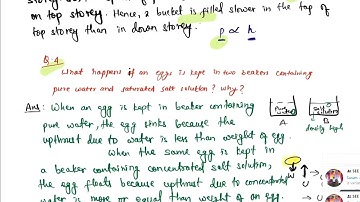 on top storey. Hence, a bucket is filled slower in the tap of
top storey than in down storey.
p ∝ h
Q.4
What happens if an eggs is kept in two beakers containing
pure water and saturated salt solution? why?
Ans: When an egg is kept in beaker containing
pure water, the egg sinks because the
upthrust due to water is less than weight of egg.
When the same egg is kept in
a beaker containing concentrated salt solution,
the egg floats because upthrust due to concentrated
water is more or equal than weight of an egg.
A
B
W
U